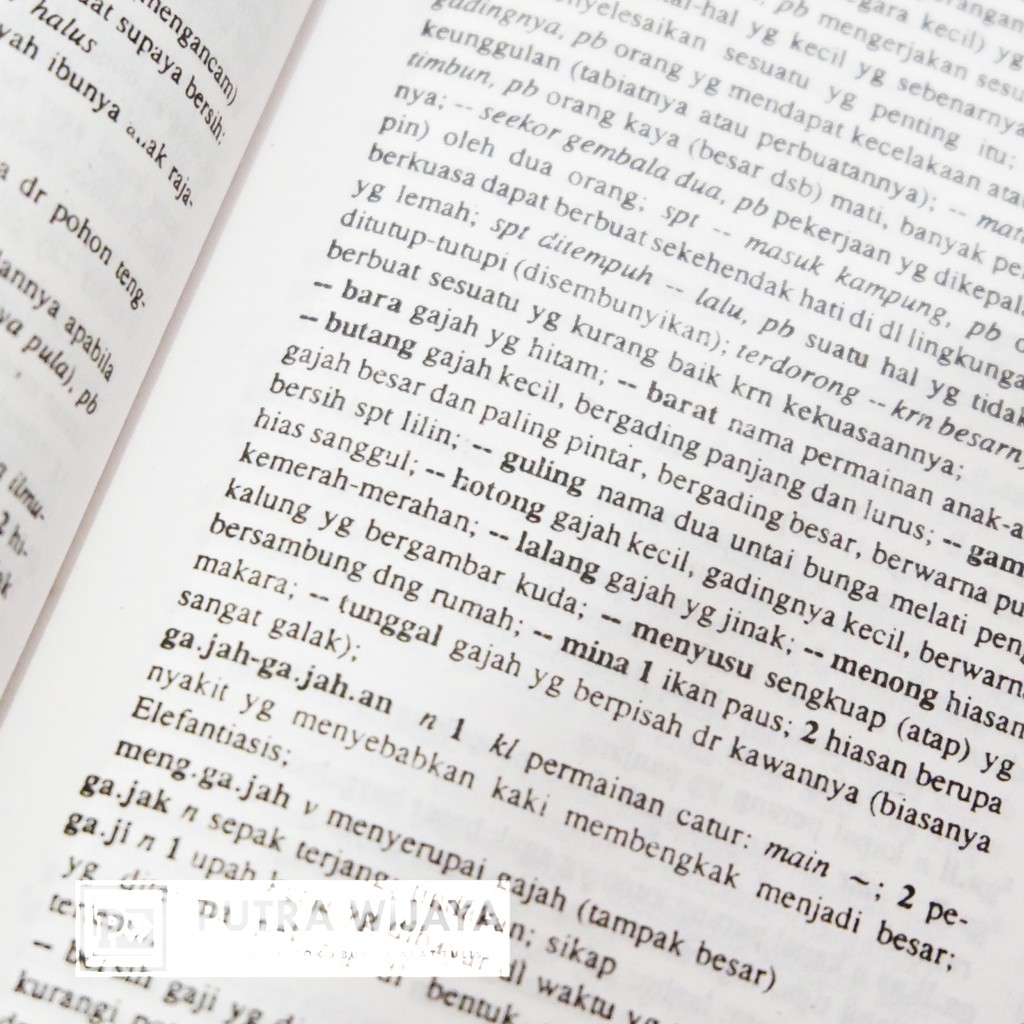 mengancam)
at supaya bersih;
halus
yah ibunya anak raja-
a dr pohon teng-
annya apabila
ya pula), pb
ilmu-
2 hu-
negara kecil) yg
pb mengerjakan sesu
menyelesaikan sesuatu yg penting itu;
hal-hal yg kecil yg sebenarnya
gadingnya, pb orang yg mendapat kecelakaan ata
keunggulan (tabiatnya atau perbuatannya); -- mati
timbun, pb orang kaya (besar dsb) mati, banyak
nya; -- seekor gembala dua, pb pekerjaan yg dikepal
pin) oleh dua orang; spt -- masuk kampung, pb o
berkuasa dapat berbuat sekehendak hati di dl lingkunga
yg lemah; spt ditempuh -- lalu, pb suatu hal yg tidak
ditutup-tutupi (disembunyikan); terdorong -- krn besarn
berbuat sesuatu yg kurang baik krn kekuasaannya;
-- bara gajah yg hitam; -- barat nama permainan anak-a
-- butang gajah kecil, bergading panjang dan lurus; -- gam
gajah besar dan paling pintar, bergading besar, berwarna pu
bersih spt lilin; -- guling nama dua untai bunga melati peng
hias sanggul; -- hotong gajah kecil, gadingnya kecil, berwarn
kemerah-merahan; -- lalang gajah yg jinak; -- menong hiasan
kalung yg bergambar kuda; -- menyusu sengkuap (atap) yg
bersambung dng rumah; -- mina 1 ikan paus; 2 hiasan berupa
makara; -- tunggal gajah yg berpisah dr kawannya (biasanya
sangat galak);
ga.jah-ga.jah.an n 1 kl permainan catur: main ~; 2 pe-
nyakit yg menyebabkan kaki membengkak menjadi besar;
Elefantiasis;
meng.ga.jah v menyerupai gajah (tampak besar)
ga.jak n sepak terjang; sikap
ga.ji n 1 upah
dl waktu yg
bentuk
gaji yg
kurangi
PUTRA WIJAYA